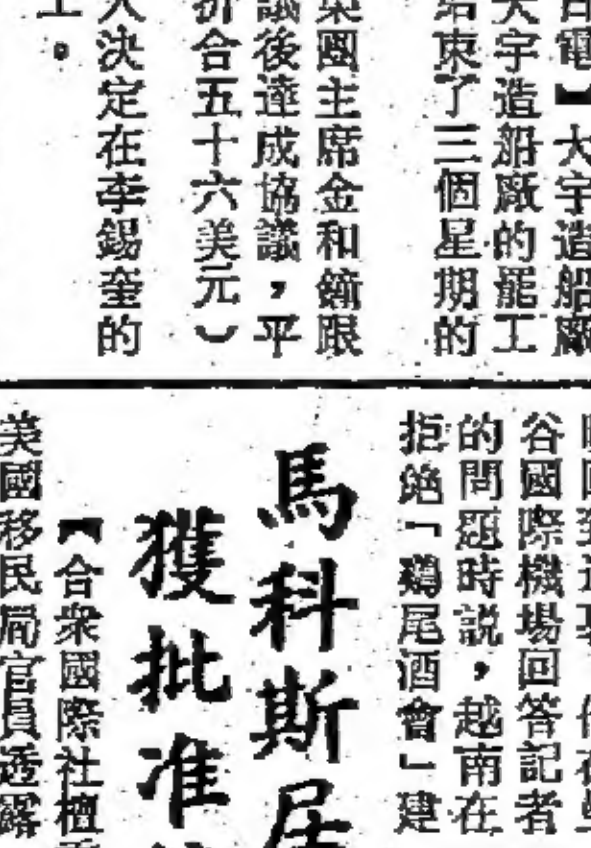 日電】大宇造船廠
大宇造船廠的罷工
結束了三個星期的
集團主席金和鏞跟
議後達成協議，平
折合五十六美元）
人決定在李錫奎的
工。
谷國際機場回答記者
的問題時説，越南在
拒绝「鷄尾酒會」建
馬科斯居
獲批准
【合衆國際社檀
美國移民局官員透露